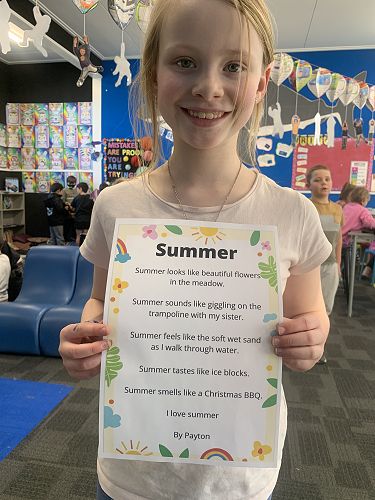 MISTAKES
ARE PROOF
YOU ARE
TRYING
Summer
Summer looks like beautiful flowers
in the meadow.
Summer sounds like giggling on the
trampoline with my sister.
Summer feels like the soft wet sand
as I walk through water.
Summer tastes like ice blocks.
Summer smells like a Christmas BBQ.
I love summer
By Payton